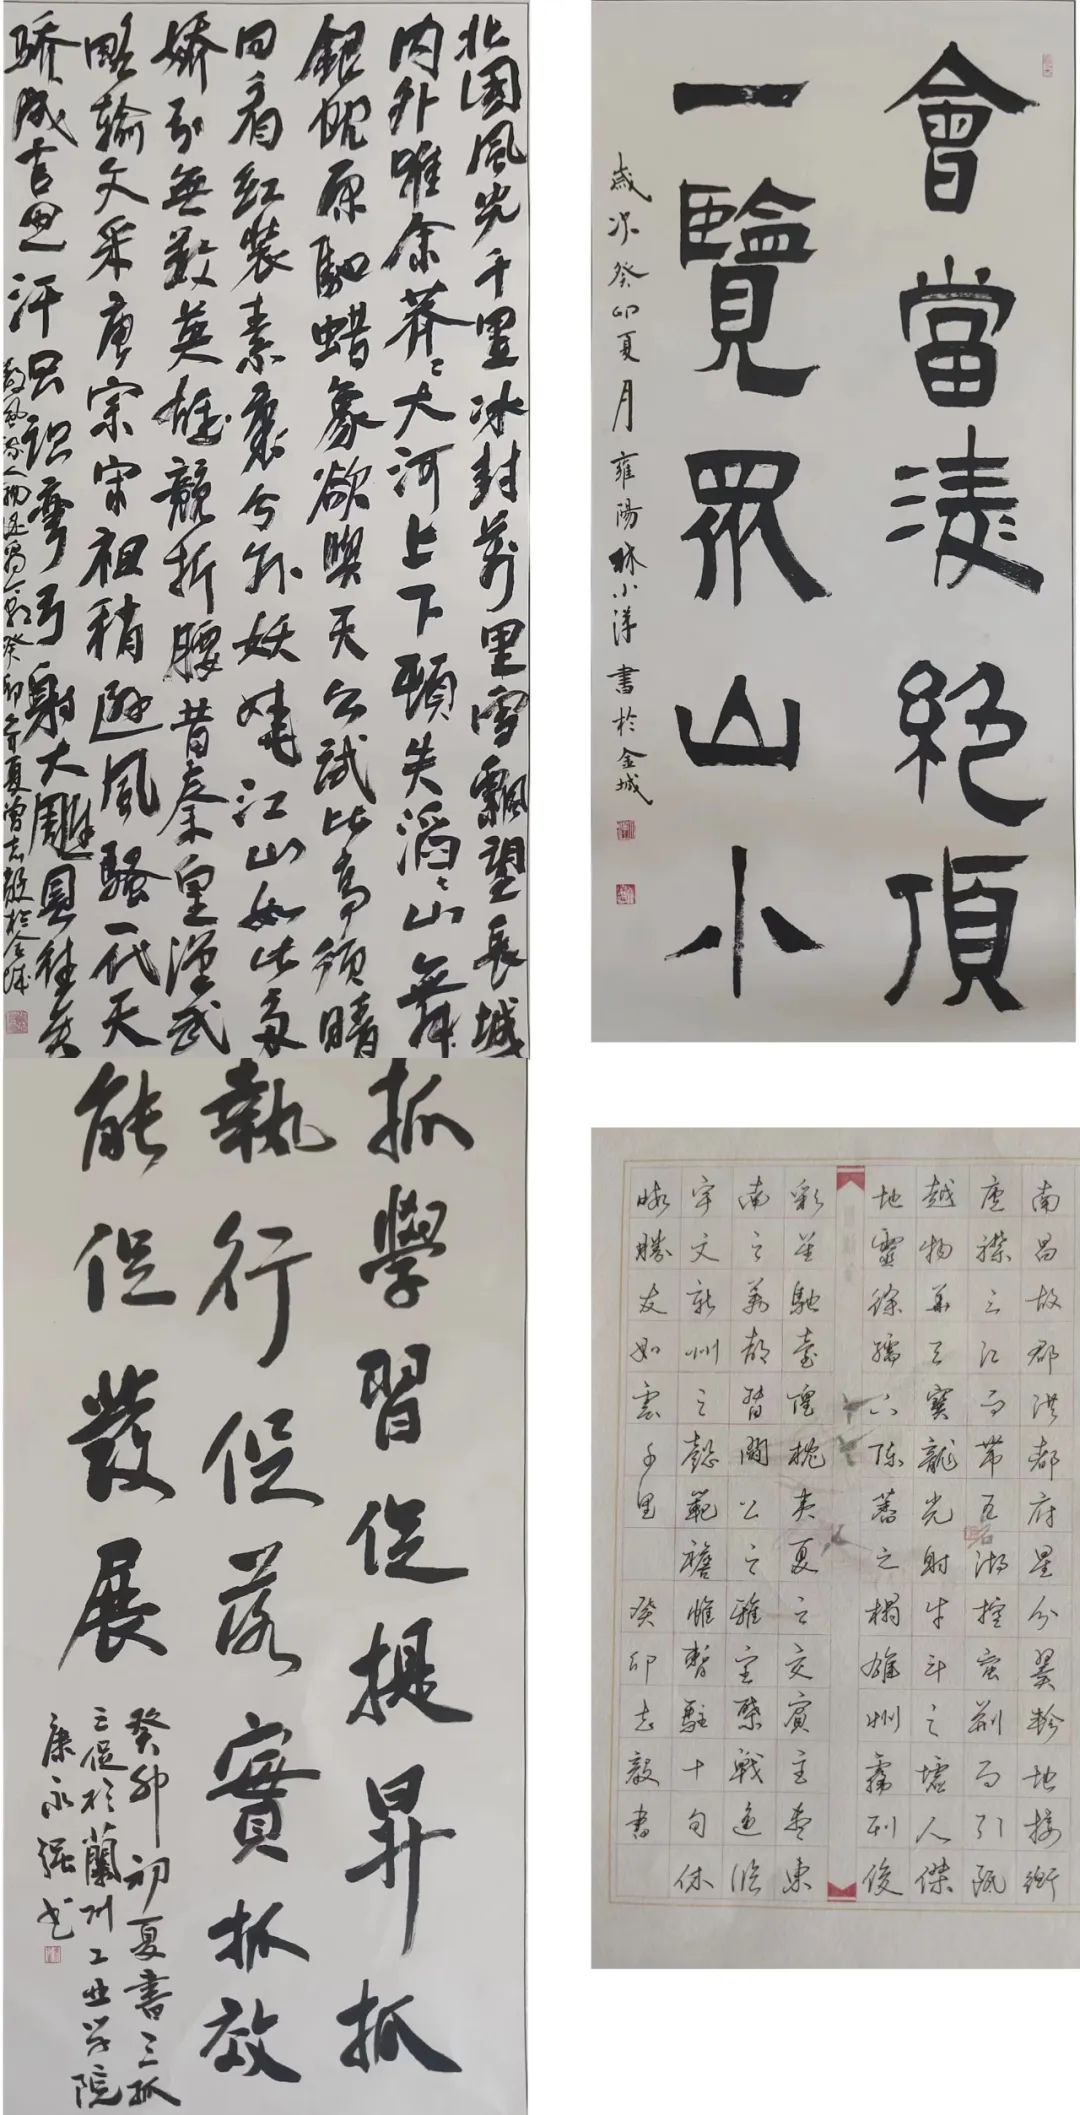 北國風光千里冰封萬里雪飄望長城
内外唯余莽〻大河上下頓失滔〻山舞
銀蛇原馳蜡象欲與天公試比高須晴
日看紅裝素裹分外妖嬈江山如此多
嬌引無數英雄競折腰昔秦皇漢武
略輸文采唐宗宋祖稍遜風騷一代天
驕成吉思汗只識彎弓射大雕俱往矣
數風流人物還看今朝癸卯年夏曾志毅於金城
會當淩絕頂
一覽眾山小
歲次癸卯夏月雍陽林小洋書於金城
抓學習促提昇抓
執行促落實抓效
能促發展
癸卯初夏書三抓
三促於蘭州工业学院
康永强书
南昌故郡洪都府星分翼軫地接衡
廬襟三江而帶五湖控蛮荆而引甌
越物華天寶龍光射牛斗之墟人傑
地靈徐孺下陳蕃之榻雄州霧列俊
彩星馳臺隍枕夷夏之交賓主盡東
南之美都督閻公之雅望棨戟遥临
宇文新州之懿範襜帷暫駐十旬休
暇勝友如雲千里 癸卯志毅書